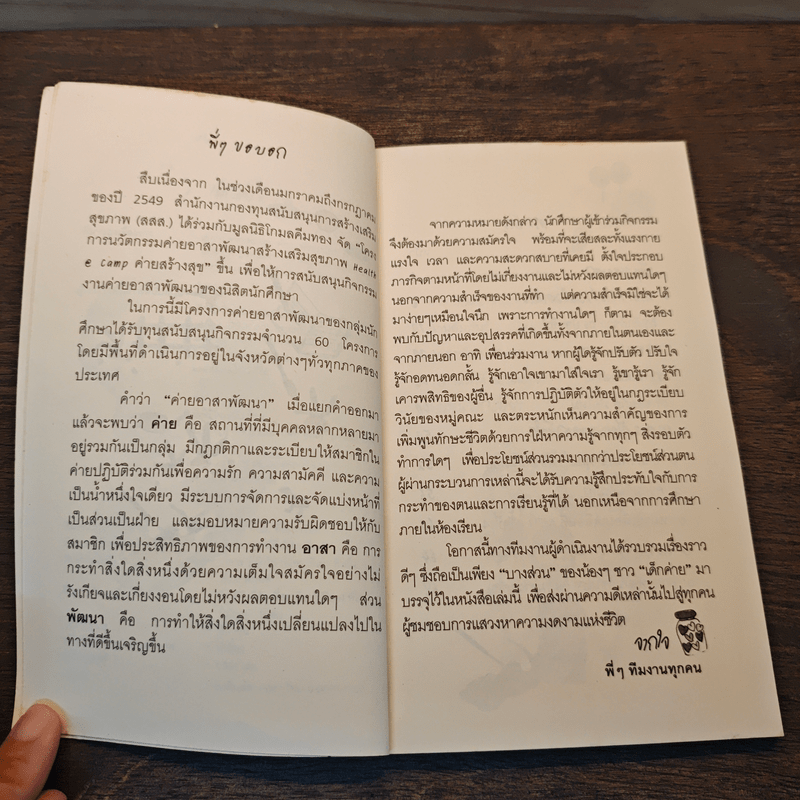 พี่ๆ ขอบอก
สืบเนื่องจาก ในช่วงเดือนมกราคมถึงกรกฎาคม
ของปี 2549 สำนักงานกองทุนสนับสนุนการสร้างเสริม
สุขภาพ (สสส.) ได้ร่วมกับมูลนิธิโกมลคีมทอง จัด "โครง
การนวัตกรรมค่ายอาสาพัฒนาสร้างเสริมสุขภาพ Health
e Camp ค่ายสร้างสุข" ขึ้น เพื่อให้การสนับสนุนกิจกรรม
งานค่ายอาสาพัฒนาของนิสิตนักศึกษา
ในการนี้มีโครงการค่ายอาสาพัฒนาของกลุ่มนัก
ศึกษาได้รับทุนสนับสนุนกิจกรรมจำนวน 60 โครงการ
โดยมีพื้นที่ดำเนินการอยู่ในจังหวัดต่างๆทั่วทุกภาคของ
ประเทศ
คำว่า "ค่ายอาสาพัฒนา" เมื่อแยกคำออกมา
แล้วจะพบว่า ค่าย คือ สถานที่ที่มีบุคคลหลากหลายมา
อยู่รวมกันเป็นกลุ่ม มีกฎกติกาและระเบียบให้สมาชิกใน
ค่ายปฏิบัติร่วมกันเพื่อความรัก ความสามัคคี และความ
เป็นน้ำหนึ่งใจเดียว มีระบบการจัดการและจัดแบ่งหน้าที่
เป็นส่วนเป็นฝ่าย และมอบหมายความรับผิดชอบให้กับ
สมาชิก เพื่อประสิทธิภาพของการทำงาน อาสา คือ การ
กระทำสิ่งใดสิ่งหนึ่งด้วยความเต็มใจสมัครใจอย่างไม่
รังเกียจและเกี่ยงงอนโดยไม่หวังผลตอบแทนใดๆ ส่วน
พัฒนา คือ การทำให้สิ่งใดสิ่งหนึ่งเปลี่ยนแปลงไปใน
ทางที่ดีขึ้นเจริญขึ้น
จากความหมายดังกล่าว นักศึกษาผู้เข้าร่วมกิจกรรม
จึงต้องมาด้วยความสมัครใจ พร้อมที่จะเสียสละทั้งแรงกาย
แรงใจ เวลา และความสะดวกสบายที่เคยมี ตั้งใจประกอบ
ภารกิจตามหน้าที่โดยไม่เกี่ยงงานและไม่หวังผลตอบแทนใดๆ
นอกจากความสำเร็จของงานที่ทำ แต่ความสำเร็จมิใช่จะได้
มาง่ายๆเหมือนใจนึก เพราะการทำงานใดๆ ก็ตาม จะต้อง
พบกับปัญหาและอุปสรรคที่เกิดขึ้นทั้งจากภายในตนเองและ
จากภายนอก อาทิ เพื่อนร่วมงาน หากผู้ใดรู้จักปรับตัว ปรับใจ
รู้จักอดทนอดกลั้น รู้จักเอาใจเขามาใส่ใจเรา รู้เขารู้เรา รู้จัก
เคารพสิทธิของผู้อื่น รู้จักการปฏิบัติตัวให้อยู่ในกฎระเบียบ
วินัยของหมู่คณะ และตระหนักเห็นความสำคัญของการ
เพิ่มพูนทักษะชีวิตด้วยการใฝ่หาความรู้จากทุกๆ สิ่งรอบตัว
ทำการใดๆ เพื่อประโยชน์ส่วนรวมมากกว่าประโยชน์ส่วนตน
ผู้ผ่านกระบวนการเหล่านี้จะได้รับความรู้สึกประทับใจกับการ
กระทำของตนและการเรียนรู้ที่ได้ นอกเหนือจากการศึกษา
ภายในห้องเรียน
โอกาสนี้ทางทีมงานผู้ดำเนินงานได้รวบรวมเรื่องราว
ดีๆ ซึ่งถือเป็นเพียง "บางส่วน" ของน้องๆ ชาว "เด็กค่าย" มา
บรรจุไว้ในหนังสือเล่มนี้ เพื่อส่งผ่านความดีเหล่านั้นไปสู่ทุกคน
ผู้ชมชอบการแสวงหาความงดงามแห่งชีวิต
จากใจ
พี่ๆ ทีมงานทุกคน